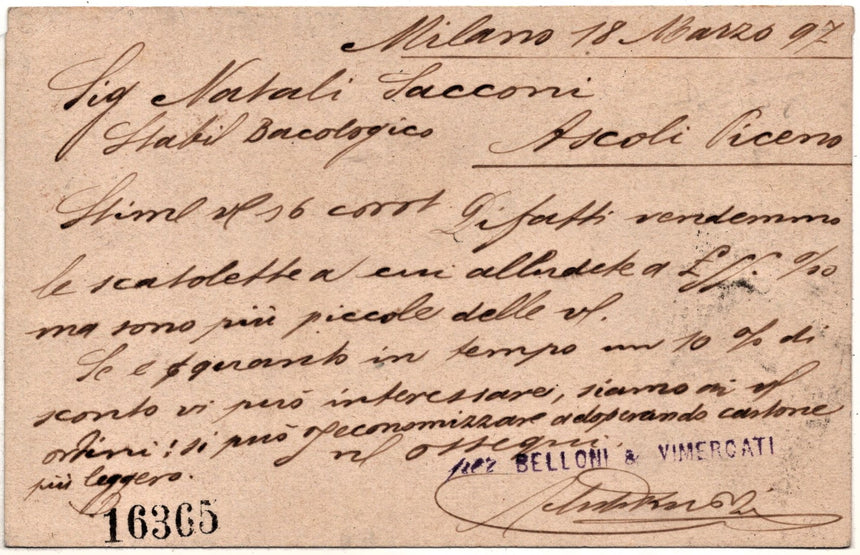 Milano 18 Marzo 97
Sig Natali Sacconi
Stabil Bacologico
Ascoli Piceno
16 corr. Difatti vendemmo
le scatolette a cui alludete a £
ma sono più piccole delle
Se e quanto in tempo un 10 % di
sconto vi può interessare, siamo ai
ordini! si può economizzare adoperando cartone
più leggero.
ossequi.
per BELLONI & VIMERCATI
16365